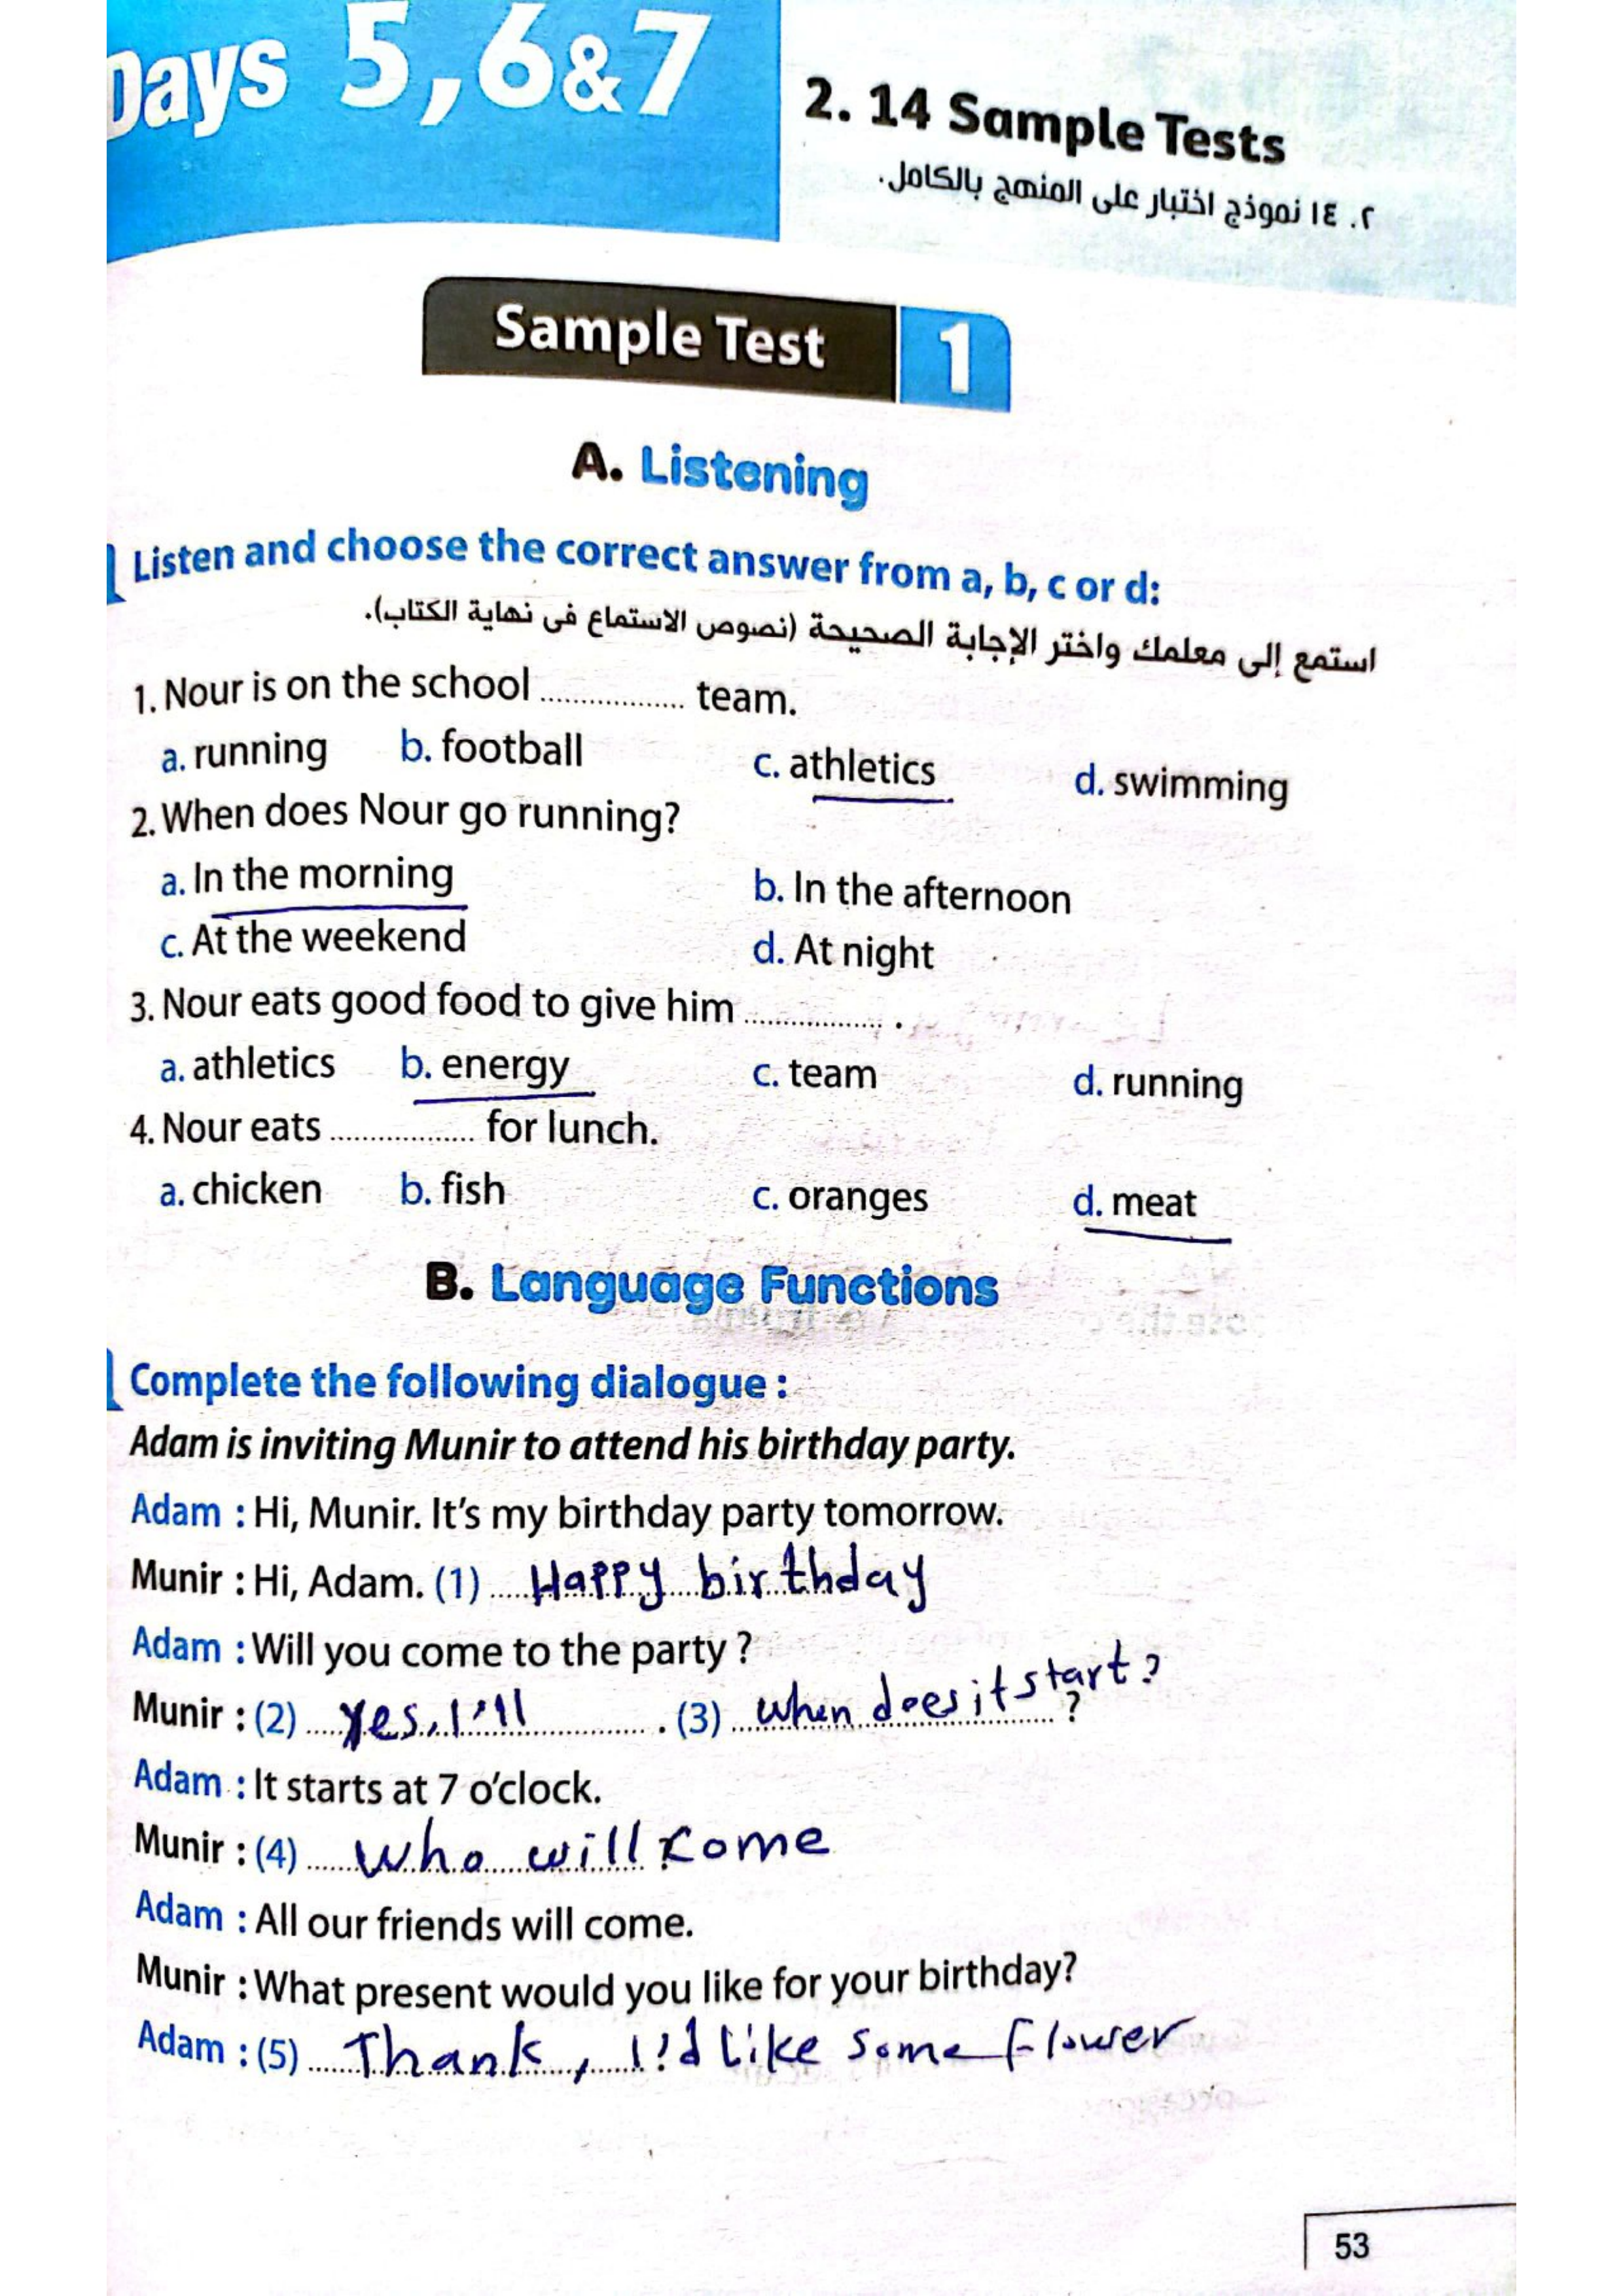 Days 5,6&7
2. 14 Sample Tests
٢. ١٤ نموذج اختبار على المنهج بالكامل.
Sample Test 1
A. Listening
Listen and choose the correct answer from a, b, c or d:
استمع إلى معلمك واختر الإجابة الصحيحة (نصوص الاستماع فى نهاية الكتاب).
1. Nour is on the school ................ team.
a. running b. football c. athletics d. swimming
2. When does Nour go running?
a. In the morning b. In the afternoon
c. At the weekend d. At night
3. Nour eats good food to give him ................ .
a. athletics b. energy c. team d. running
4. Nour eats ................ for lunch.
a. chicken b. fish c. oranges d. meat
B. Language Functions
Complete the following dialogue :
Adam is inviting Munir to attend his birthday party.
Adam : Hi, Munir. It's my birthday party tomorrow.
Munir : Hi, Adam. (1) Happy birthday
Adam : Will you come to the party ?
Munir : (2) Yes, I'll . (3) when does it start? ?
Adam : It starts at 7 o'clock.
Munir : (4) Who will come
Adam : All our friends will come.
Munir : What present would you like for your birthday?
Adam : (5) Thank, I'd Like some flower
53